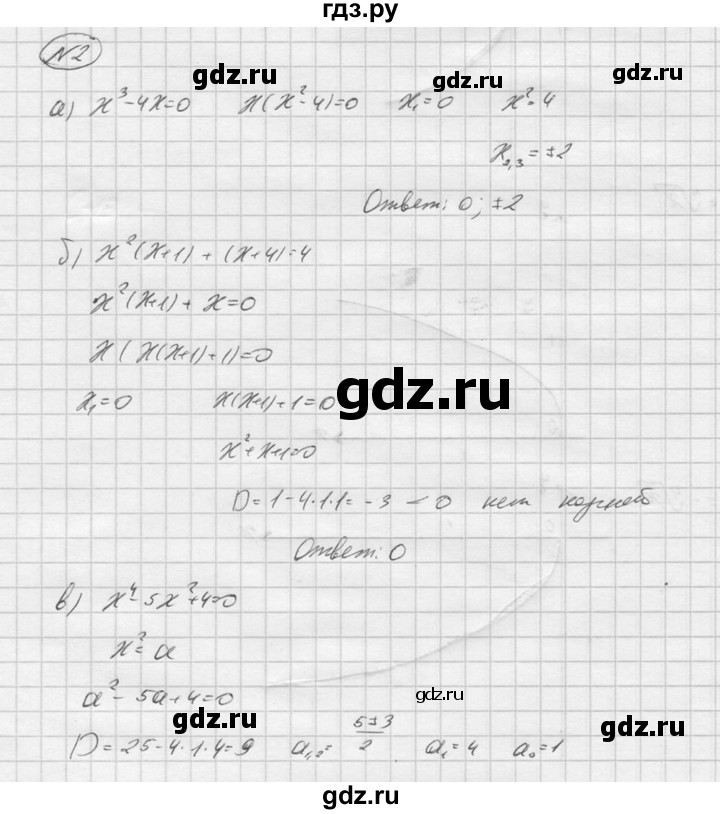 гдз.ру
№2
gdz.ru
gdz.ru
gdz.ru
а) x³-4x=0 x(x²-4)=0 x₁=0 x²=4
x₂,₃=±2
Ответ: 0; ±2
б) x²(x+1)+(x+4)=4
x²(x+1)+x=0
x(x(x+1)+1)=0
gdz.ru
x₁=0 x(x+1)+1=0
x²+x+1=0
D=1-4·1·1=-3<0 нет корней
Ответ: 0
в) x⁴-5x²+4=0
x²=a
a²-5a+4=0
gdz.ru
gdz.ru
gdz.ru
D=25-4·1·4=9 a₁,₂=5±3/2 a₁=4 a₂=1
gdz.ru